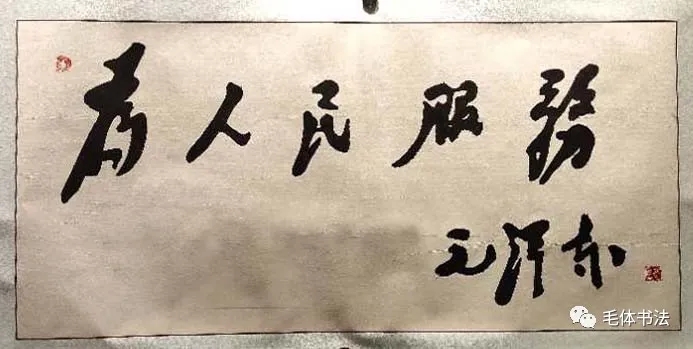 為人民服務
毛澤东
毛体书法